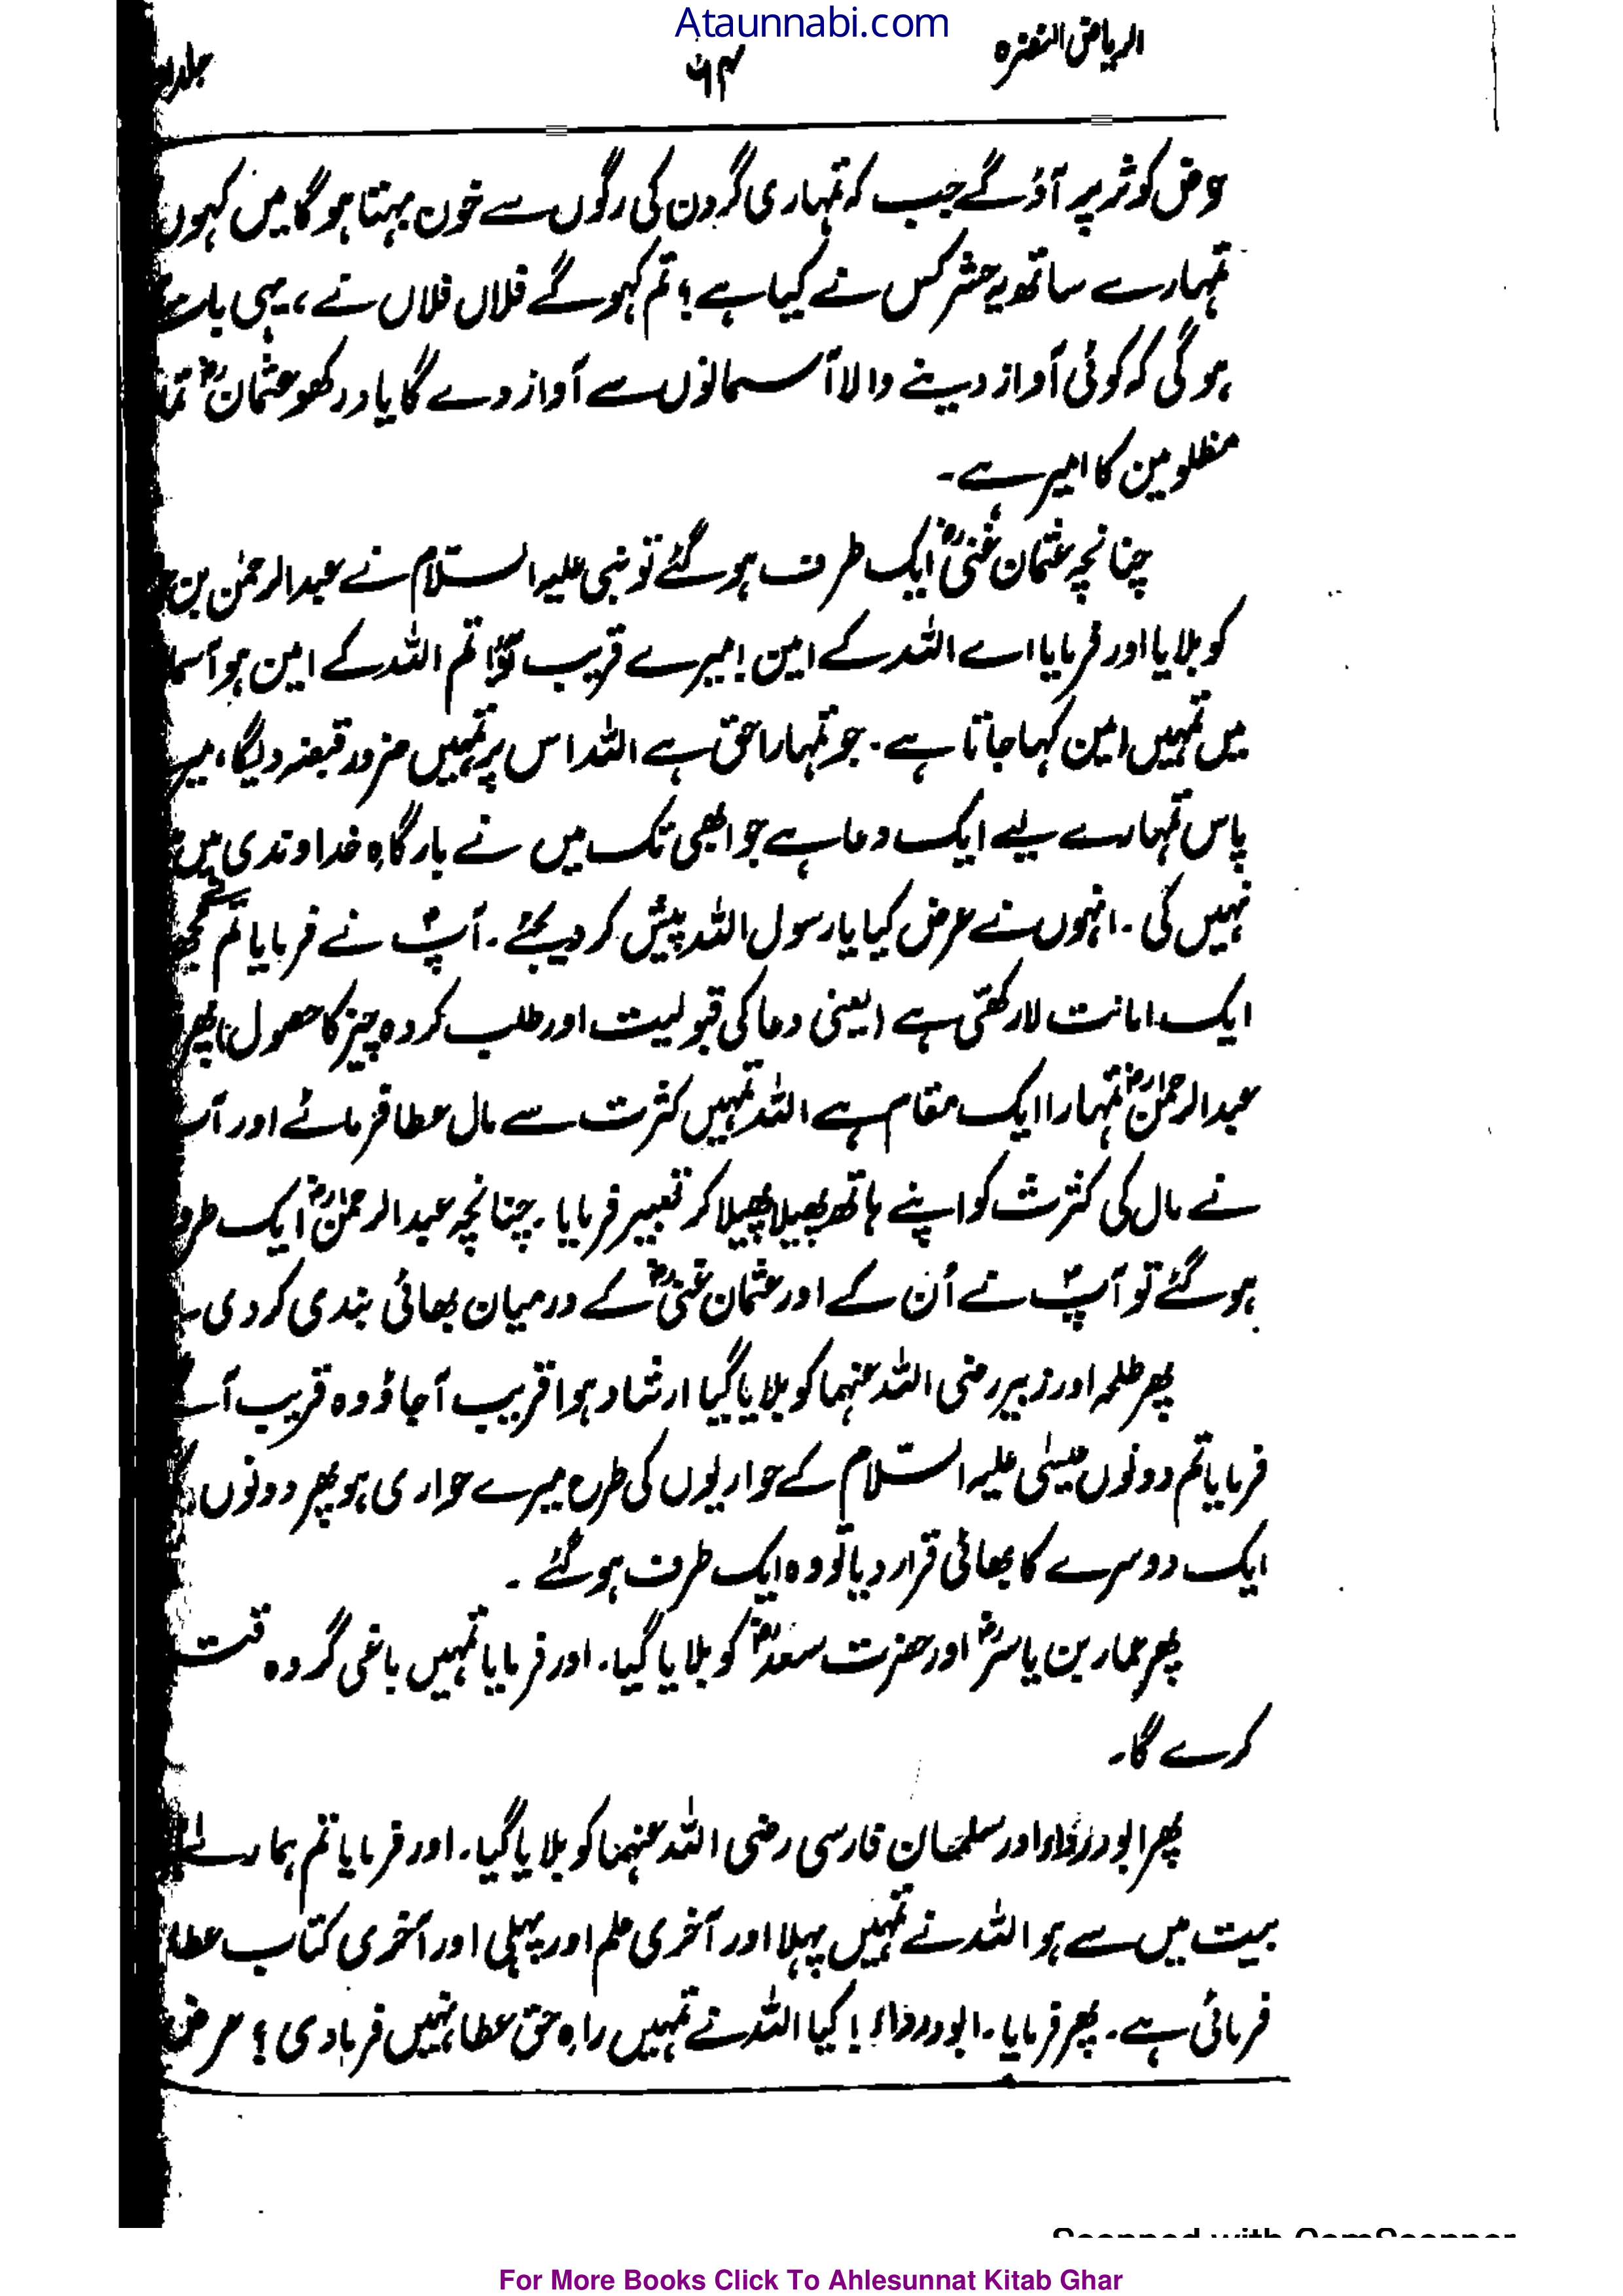 Ataunnabi.com
الریاض النضرہ
۶۴
جلد
حوض کوثر پر آؤ گے جب کہ تمہاری گردن کی رگوں سے خون بہتا ہو گا میں کہوں
تمہارے ساتھ یہ حشر کس نے کیا ہے؟ تم کہو گے فلاں فلاں نے، یہی بات
ہو گی کہ کوئی آواز دینے والا آسمانوں سے آواز دے گا یاد رکھو عثمانؓ
مظلومین کا امیر ہے۔
چنانچہ عثمان غنیؓ ایک طرف ہو گئے تو نبی علیہ السلام نے عبدالرحمٰن بن
کو بلایا اور فرمایا اے اللہ کے امین! میرے قریب آؤ تم اللہ کے امین ہو
میں تمہیں امین کہا جاتا ہے۔ جو تمہارا حق ہے اللہ اس پر تمہیں ضرور قبضہ دیگا،
پاس تمہارے لیے ایک دعا ہے جو ابھی تک میں نے بارگاہِ خداوندی میں
نہیں کی۔ انہوں نے عرض کیا یا رسول اللہ پیش کر دیجئے۔ آپؐ نے فرمایا تم
ایک امانت لا رکھی ہے (یعنی دعا کی قبولیت اور طلب کردہ چیز کا حصول) پھر
عبدالرحمٰنؓ تمہارا ایک مقام ہے اللہ تمہیں کثرت سے مال عطا فرمائے اور آپ
نے مال کی کثرت کو اپنے ہاتھ پھیلا پھیلا کر تعبیر فرمایا۔ چنانچہ عبدالرحمٰنؓ ایک طرف
ہو گئے تو آپؐ نے اُن کے اور عثمان غنیؓ کے درمیان بھائی بندی کر دی۔
پھر طلحہ اور زبیر رضی اللہ عنہما کو بلایا گیا ارشاد ہوا قریب آ جاؤ وہ قریب
فرمایا تم دونوں عیسٰی علیہ السلام کے حواریوں کی طرح میرے حواری ہو پھر دونوں
ایک دوسرے کا بھائی قرار دیا تو وہ ایک طرف ہو گئے۔
پھر عمار بن یاسرؓ اور حضرت سعدؓ کو بلایا گیا۔ اور فرمایا تمہیں باغی گروہ
کرے گا۔
پھر ابودرداء اور سلمان فارسی رضی اللہ عنہما کو بلایا گیا۔ اور فرمایا تم ہمارے
بیت میں سے ہو اللہ نے تمہیں پہلا اور آخری علم اور پہلی اور آخری کتاب عطا
فرمائی ہے۔ پھر فرمایا۔ ابودرداء! کیا اللہ نے تمہیں راہِ حق عطا نہیں فرما دی؟ عرض
Scanned with CamScanner
For More Books Click To Ahlesunnat Kitab Ghar